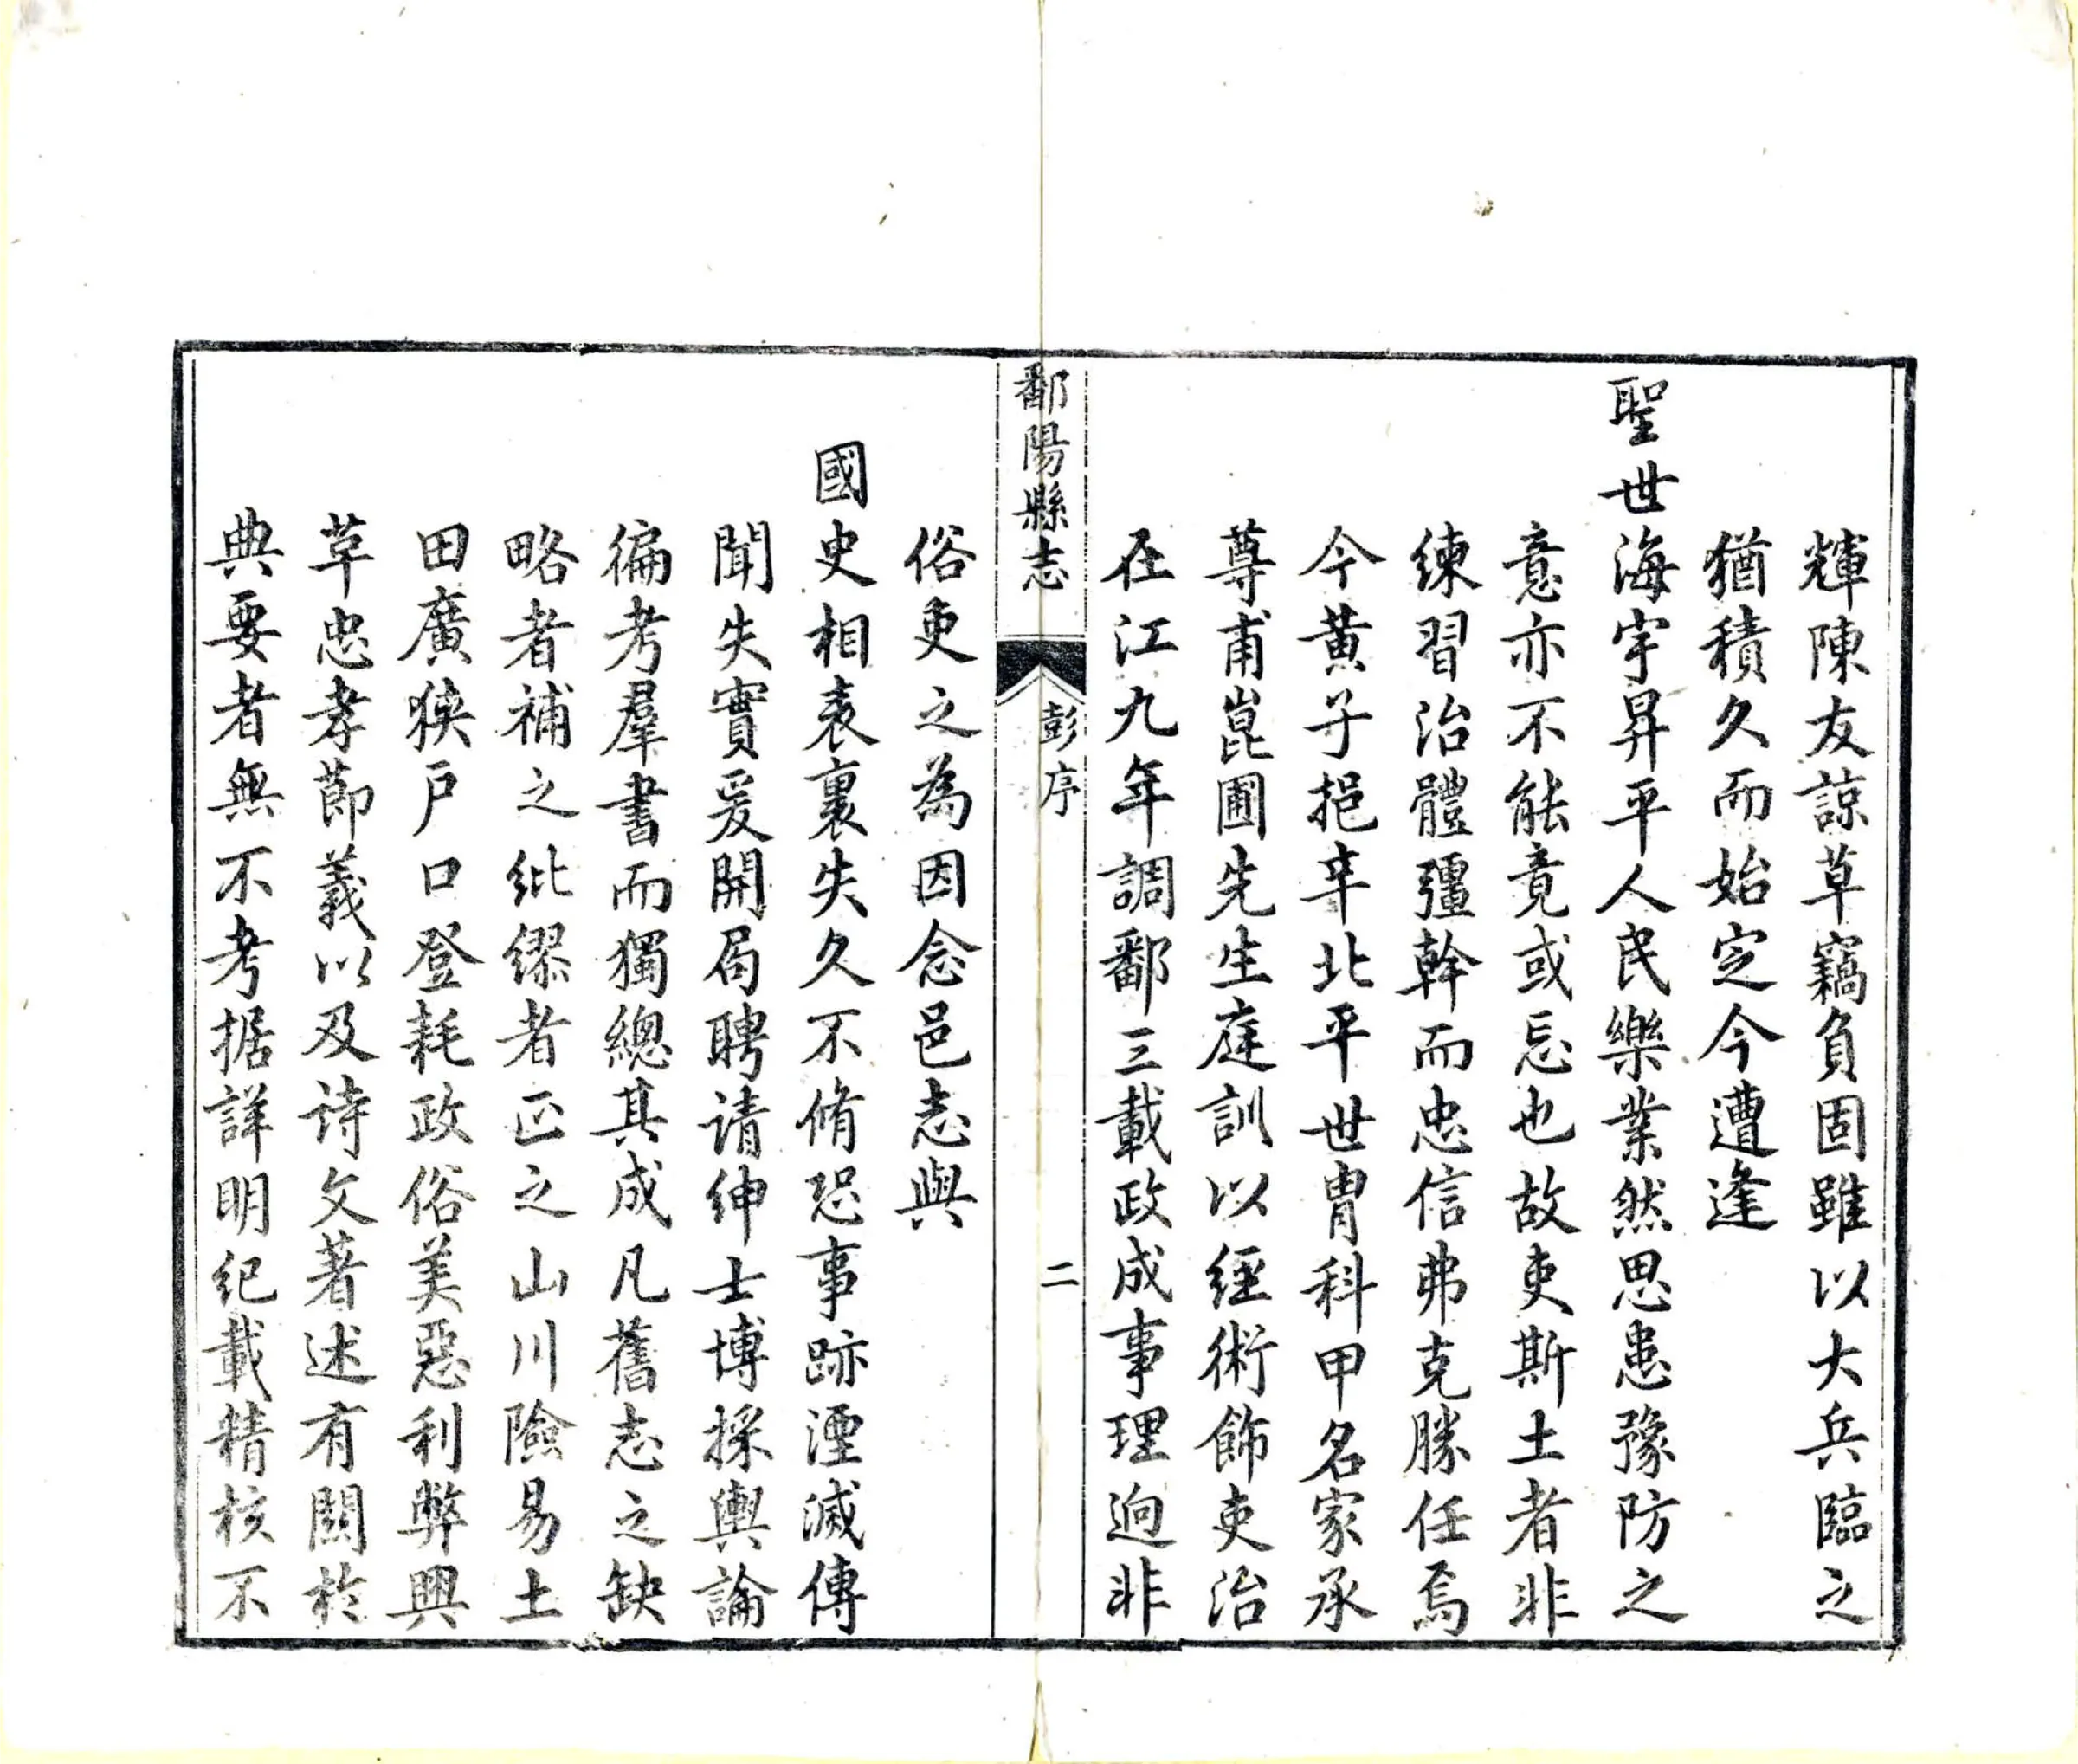 輝陳友諒草竊負固雖以大兵臨之
猶積久而始定今遭逢
聖世海宇昇平人民樂業然思患豫防之
意亦不能竟或忘也故吏斯土者非
練習治體彊幹而忠信弗克勝任焉
今黃子挹辛北平世胄科甲名家承
尊甫崑圃先生庭訓以經術飾吏治
在江九年調鄱三載政成事理迥非
鄱陽縣志
彭序
二
俗吏之為因念邑志與
國史相表裏失久不脩恐事跡湮滅傳
聞失實爰開局聘请紳士博採輿論
徧考羣書而獨總其成凡舊志之缺
略者補之紕繆者正之山川險易土
田廣狹戶口登耗政俗美惡利弊興
革忠孝節義以及诗文著述有關於
典要者無不考据詳明紀載精核不